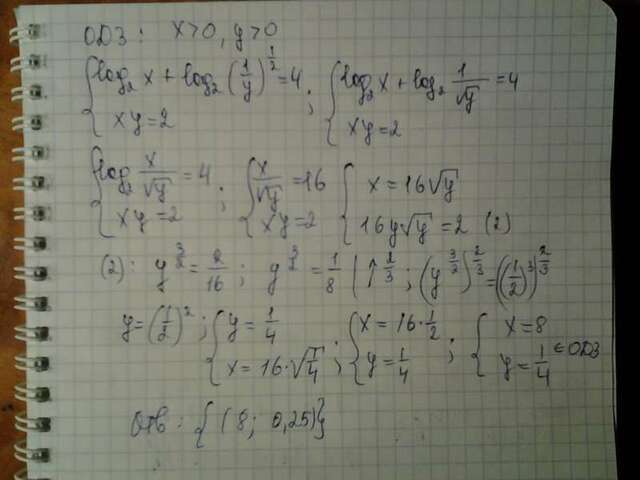 ОДЗ: x>0, y>0
{ log₂ x + log₂ (1/y)^(1/2) = 4 ; { log₂ x + log₂ 1/√y = 4
xy=2 xy=2
{ log₂ x/√y = 4 ; { x/√y = 16 { x = 16√y
xy=2 xy=2 16y√y = 2 (2)
(2): y^(3/2) = 2/16 ; y^(3/2) = 1/8 | ↑ 2/3 ; (y^(3/2))^(2/3) = ((1/2)^3)^(2/3)
y = (1/2)^2 ; { y = 1/4 ; { x = 16·1/2 ; { x = 8
x = 16·√(1/4) y = 1/4 y = 1/4 ∈ ОДЗ
Отв: {(8; 0,25)}